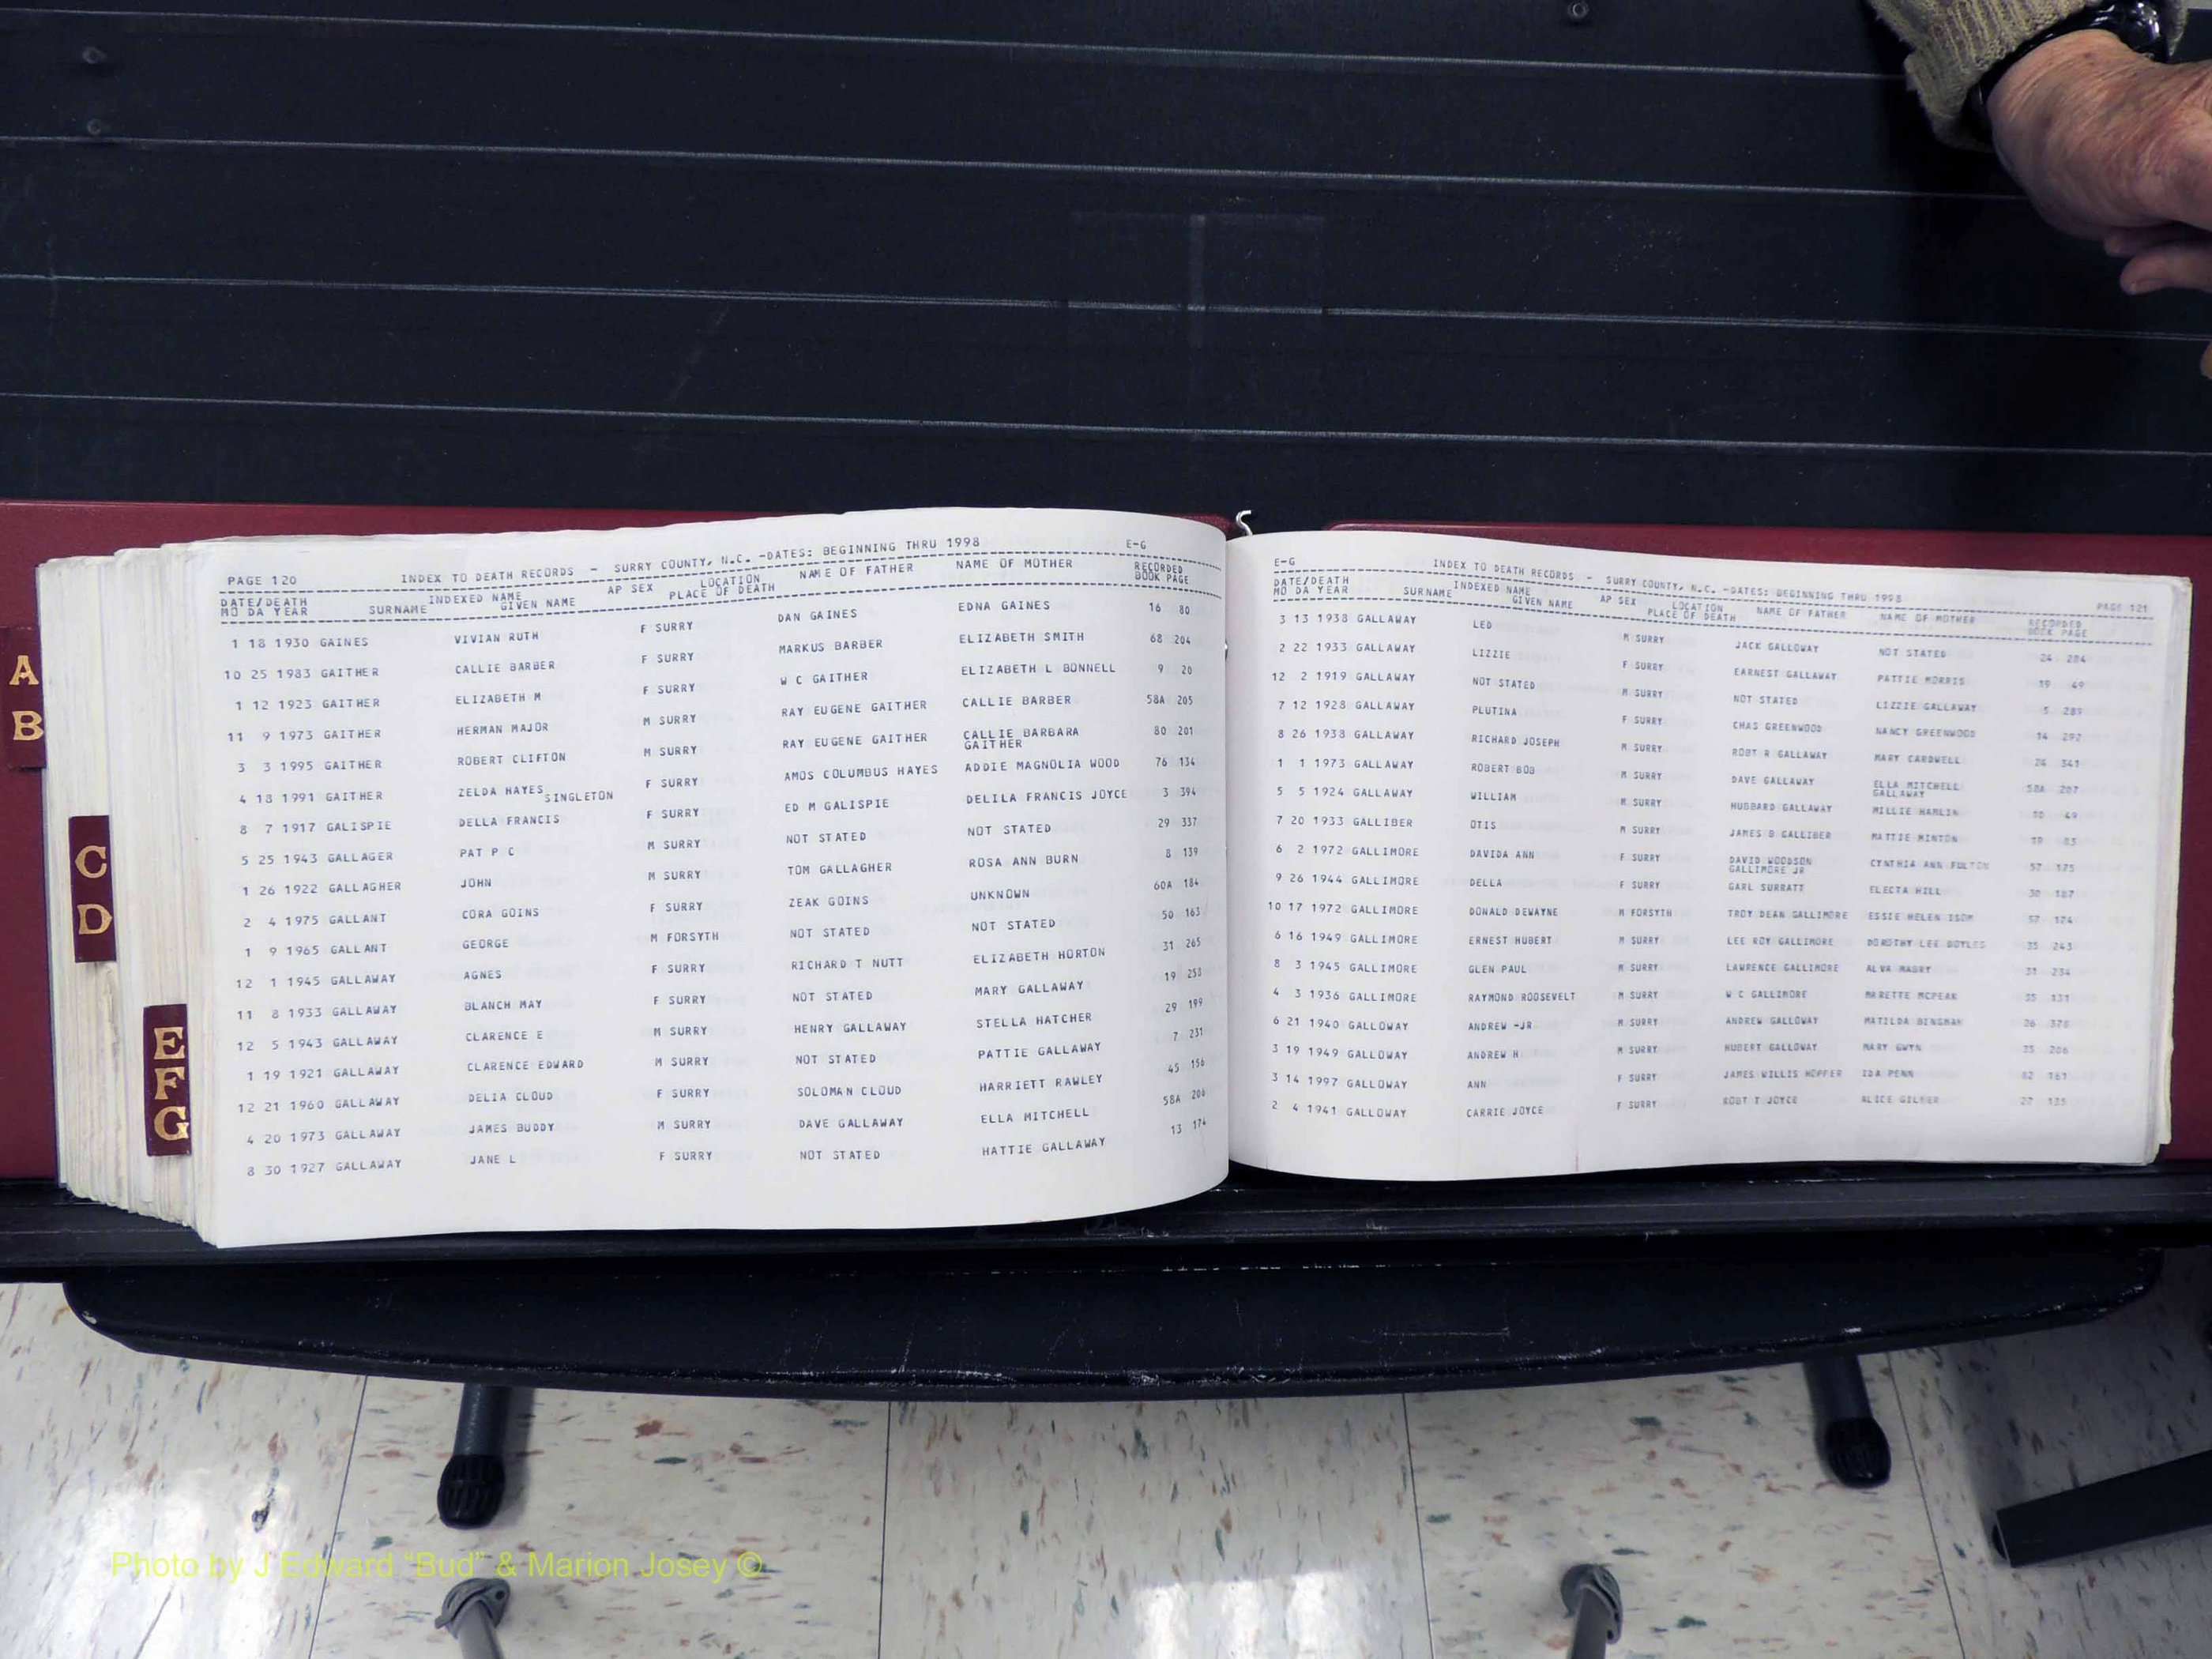 A
B
C
D
E
F
G
PAGE 120 INDEX TO DEATH RECORDS - SURRY COUNTY, N.C. -DATES: BEGINNING THRU 1998 E-G
DATE/DEATH INDEXED NAME AP SEX LOCATION NAME OF FATHER NAME OF MOTHER RECORDED
MO DA YEAR SURNAME GIVEN NAME PLACE OF DEATH BOOK PAGE
1 18 1930 GAINES VIVIAN RUTH F SURRY DAN GAINES EDNA GAINES 16 80
10 25 1983 GAITHER CALLIE BARBER F SURRY MARKUS BARBER ELIZABETH SMITH 68 204
1 12 1923 GAITHER ELIZABETH M F SURRY W C GAITHER ELIZABETH L BONNELL 9 20
11 9 1973 GAITHER HERMAN MAJOR M SURRY RAY EUGENE GAITHER CALLIE BARBER 58A 205
3 3 1995 GAITHER ROBERT CLIFTON M SURRY RAY EUGENE GAITHER CALLIE BARBARA 80 201
GAITHER
4 18 1991 GAITHER ZELDA HAYES F SURRY AMOS COLUMBUS HAYES ADDIE MAGNOLIA WOOD 76 134
SINGLETON
8 7 1917 GALISPIE DELLA FRANCIS F SURRY ED M GALISPIE DELILA FRANCIS JOYCE 3 394
5 25 1943 GALLAGER PAT P C M SURRY NOT STATED NOT STATED 29 337
1 26 1922 GALLAGHER JOHN M SURRY TOM GALLAGHER ROSA ANN BURN 8 139
2 4 1975 GALLANT CORA GOINS F SURRY ZEAK GOINS UNKNOWN 60A 184
1 9 1965 GALLANT GEORGE M FORSYTH NOT STATED NOT STATED 50 163
12 1 1945 GALLAWAY AGNES F SURRY RICHARD T NUTT ELIZABETH HORTON 31 265
11 8 1933 GALLAWAY BLANCH MAY F SURRY NOT STATED MARY GALLAWAY 19 258
12 5 1943 GALLAWAY CLARENCE E M SURRY HENRY GALLAWAY STELLA HATCHER 29 199
1 19 1921 GALLAWAY CLARENCE EDWARD M SURRY NOT STATED PATTIE GALLAWAY 7 231
12 21 1960 GALLAWAY DELIA CLOUD F SURRY SOLOMAN CLOUD HARRIETT RAWLEY 45 156
4 20 1973 GALLAWAY JAMES BUDDY M SURRY DAVE GALLAWAY ELLA MITCHELL 58A 206
8 30 1927 GALLAWAY JANE L F SURRY NOT STATED HATTIE GALLAWAY 13 174
E-G INDEX TO DEATH RECORDS - SURRY COUNTY, N.C. -DATES: BEGINNING THRU 1998 PAGE 121
DATE/DEATH INDEXED NAME AP SEX LOCATION NAME OF FATHER NAME OF MOTHER RECORDED
MO DA YEAR SURNAME GIVEN NAME PLACE OF DEATH BOOK PAGE
3 13 1938 GALLAWAY LEO M SURRY JACK GALLOWAY NOT STATED 24 284
2 22 1933 GALLAWAY LIZZIE F SURRY EARNEST GALLAWAY PATTIE MORRIS 19 49
12 2 1919 GALLAWAY NOT STATED M SURRY NOT STATED LIZZIE GALLAWAY 5 289
7 12 1928 GALLAWAY PLUTINA F SURRY CHAS GREENWOOD NANCY GREENWOOD 14 292
8 26 1938 GALLAWAY RICHARD JOSEPH M SURRY ROBT R GALLAWAY MARY CARDWELL 24 341
1 1 1973 GALLAWAY ROBERT BOB M SURRY DAVE GALLAWAY ELLA MITCHELL 58A 207
GALLAWAY
5 5 1924 GALLAWAY WILLIAM M SURRY HUBBARD GALLAWAY MILLIE HAMLIN 10 49
7 20 1933 GALLIBER OTIS M SURRY JAMES B GALLIBER MATTIE MINTON 19 83
6 2 1972 GALLIMORE DAVIDA ANN F SURRY DAVID WOODSON CYNTHIA ANN FULTON 57 175
GALLIMORE JR
9 26 1944 GALLIMORE DELLA F SURRY GARL SURRATT ELECTA HILL 30 187
10 17 1972 GALLIMORE DONALD DEWAYNE M FORSYTH TROY DEAN GALLIMORE ESSIE HELEN ISOM 57 174
6 16 1949 GALLIMORE ERNEST HUBERT M SURRY LEE ROY GALLIMORE DOROTHY LEE BOYLES 35 243
8 3 1945 GALLIMORE GLEN PAUL M SURRY LAWRENCE GALLIMORE ALVA MABRY 31 234
4 3 1936 GALLIMORE RAYMOND ROOSEVELT M SURRY W C GALLIMORE MARETTE MCPEAK 131
6 21 1940 GALLOWAY ANDREW -JR M SURRY ANDREW GALLOWAY MATILDA BINGMAN 26 378
3 19 1949 GALLOWAY ANDREW H M SURRY HUBERT GALLOWAY MARY GWYN 35 206
3 14 1997 GALLOWAY ANN F SURRY JAMES WILLIS HOPPER IDA PENN 82 161
2 4 1941 GALLOWAY CARRIE JOYCE F SURRY ROBT T JOYCE ALICE GILMER 27 135
Photo by J Edward “Bud” & Marion Josey ©